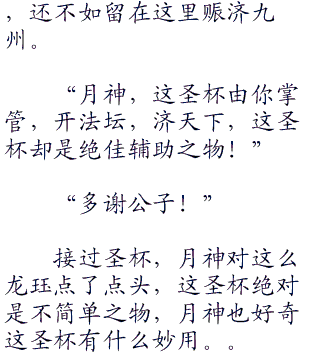 ，还不如留在这里赈济九
州。
“月神，这圣杯由你掌
管，开法坛，济天下，这圣
杯却是绝佳辅助之物！”
“多谢公子！”
接过圣杯，月神对这么
龙珏点了点头，这圣杯绝对
是不简单之物，月神也好奇
这圣杯有什么妙用。。